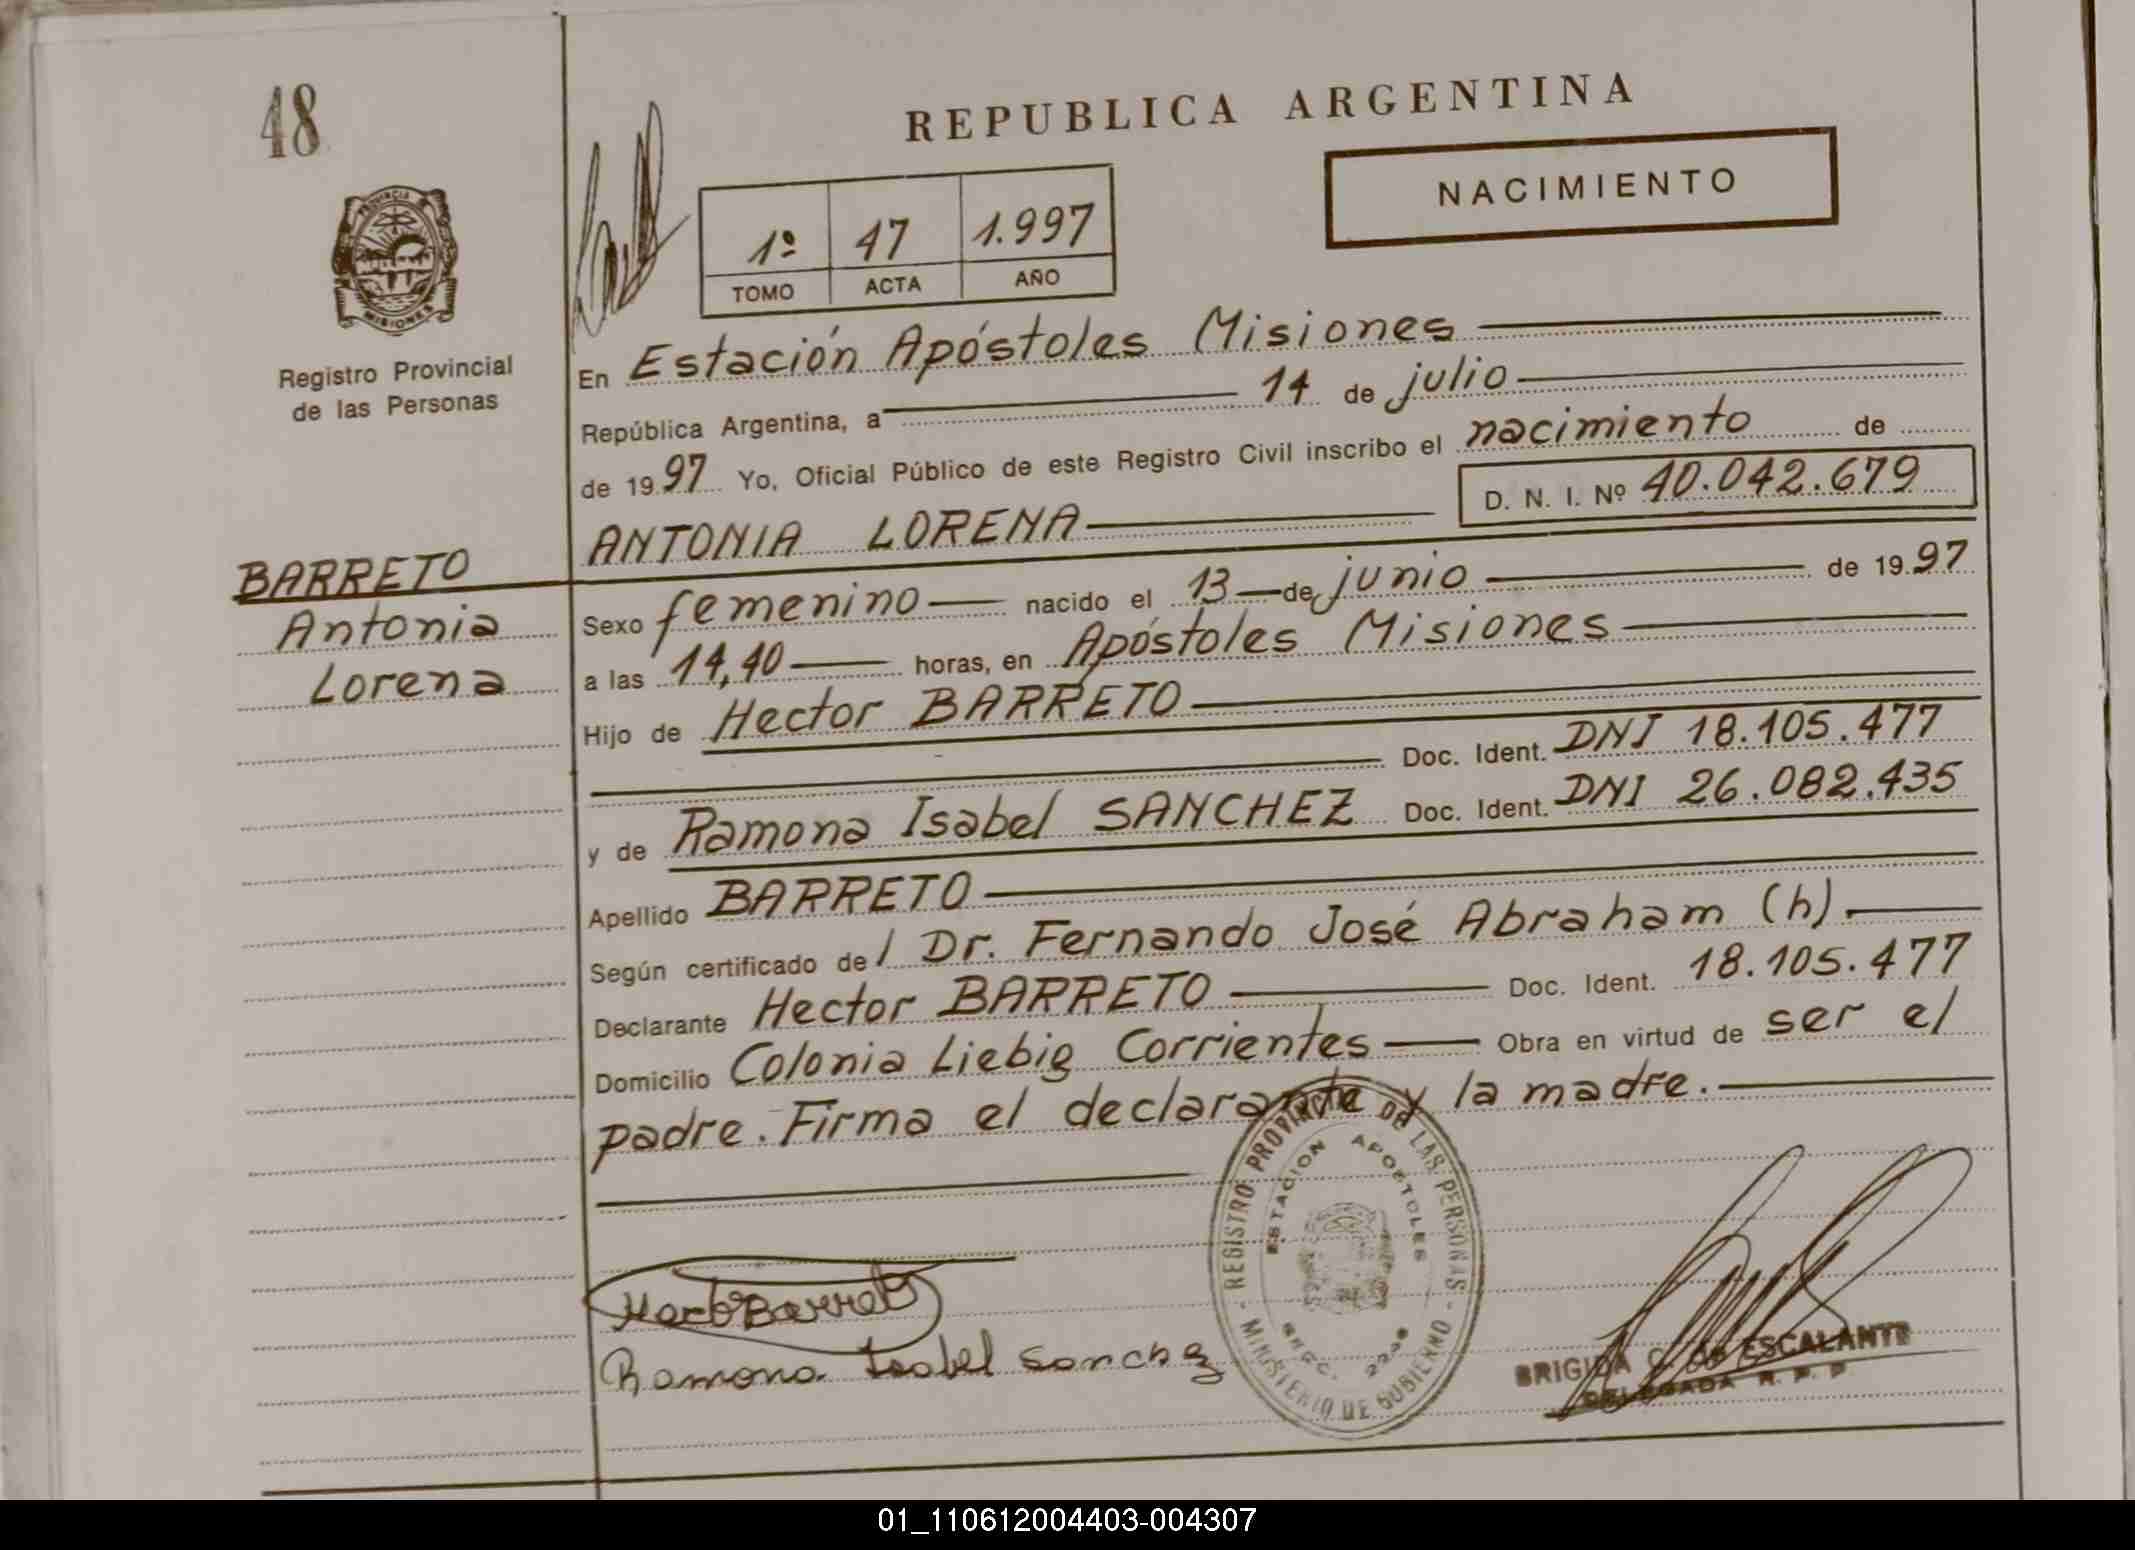 48
REPUBLICA ARGENTINA
NACIMIENTO
1º 47 1.997
TOMO ACTA AÑO
PROVINCIA
MISIONES
Registro Provincial
de las Personas
En Estación Apóstoles Misiones
República Argentina, a 14 de julio
de 1997 Yo, Oficial Público de este Registro Civil inscribo el nacimiento de
D. N. I. Nº 40.042.679
ANTONIA LORENA
BARRETO
Antonia
Lorena
Sexo femenino nacido el 13 de junio de 1997
a las 14,40 horas, en Apóstoles Misiones
Hijo de Hector BARRETO
Doc. Ident. DNI 18.105.477
y de Ramona Isabel SANCHEZ Doc. Ident. DNI 26.082.435
Apellido BARRETO
Según certificado del Dr. Fernando José Abraham (h)
Declarante Hector BARRETO Doc. Ident. 18.105.477
Domicilio Colonia Liebig Corrientes Obra en virtud de ser el
padre. Firma el declarante y la madre.
REGISTRO PROVINCIAL DE LAS PERSONAS
ESTACION APOSTOLES
MINISTERIO DE GOBIERNO
Ramona Isabel Sanchez
BRIGIDA C. de ESCALANTE
DELEGADA R. P. P.
01_110612004403-004307